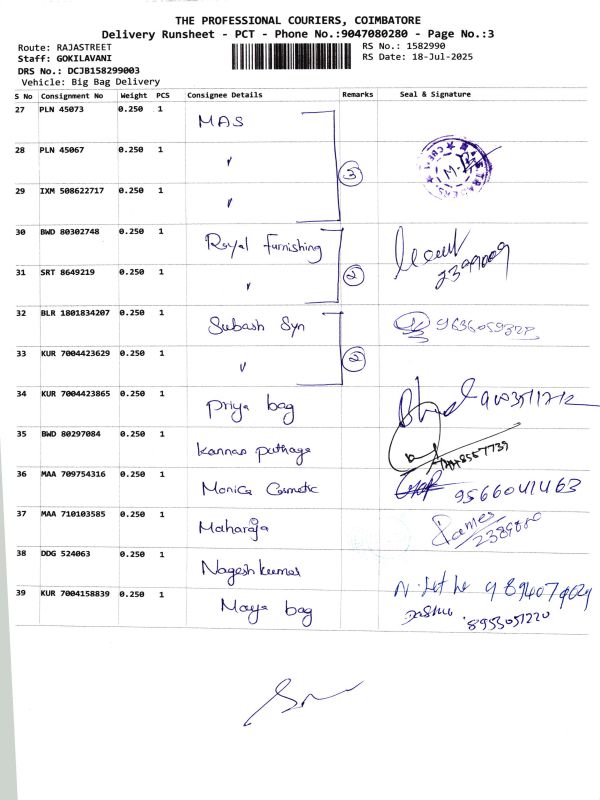 THE PROFESSIONAL COURIERS, COIMBATORE
Delivery Runsheet - PCT - Phone No.:9047080280 - Page No.:3
Route: RAJASTREET RS No.: 1582990
Staff: GOKILAVANI RS Date: 18-Jul-2025
DRS No.: DCJB158299003
Vehicle: Big Bag Delivery
S No Consignment No Weight PCS Consignee Details Remarks Seal & Signature
27 PLN 45073 0.250 1 MAS
28 PLN 45067 0.250 1 〃 3
29 IXM 508622717 0.250 1 〃
30 BWD 80302748 0.250 1 Royal furnishing
31 SRT 8649219 0.250 1 〃 2 2399009
32 BLR 1801834207 0.250 1 Subash Syn
33 KUR 7004423629 0.250 1 〃 2
34 KUR 7004423865 0.250 1 Priya bag
35 BWD 80297084 0.250 1 kannan puthaga
36 MAA 709754316 0.250 1 Monica Cosmetic 9566041463
37 MAA 710103585 0.250 1 Maharaja
38 DDG 524063 0.250 1 Nagesh kumar
39 KUR 7004158839 0.250 1 Maya bag 8953051220